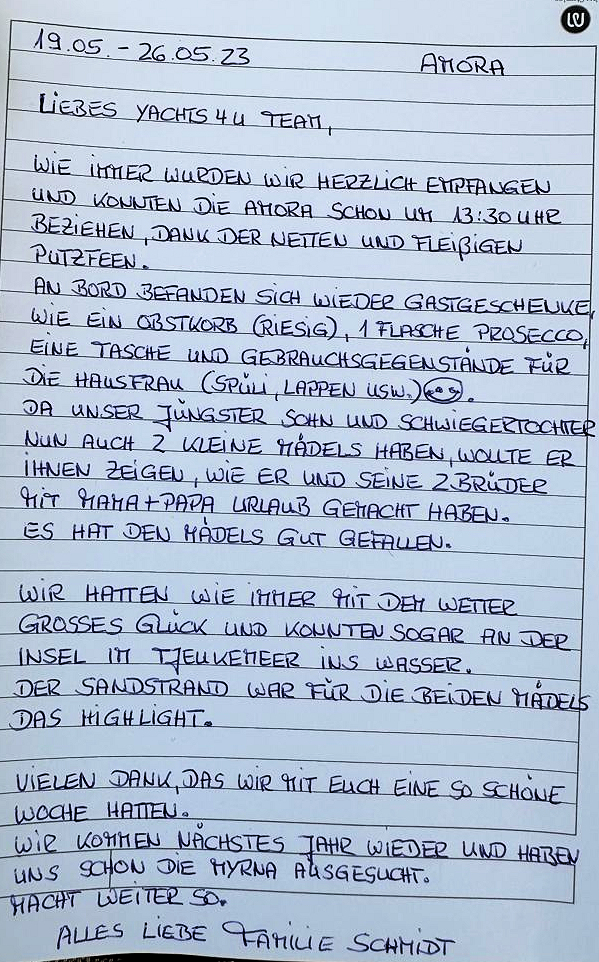 19.05. - 26.05.23 AMORA
LIEBES YACHTS 4U TEAM,
WIE IMMER WURDEN WIR HERZLICH EMPFANGEN
UND KONNTEN DIE AMORA SCHON UM 13:30 UHR
BEZIEHEN, DANK DER NETTEN UND FLEIßIGEN
PUTZFEEN.
AN BORD BEFANDEN SICH WIEDER GASTGESCHENKE,
WIE EIN OBSTKORB (RIESIG), 1 FLASCHE PROSECCO,
EINE TASCHE UND GEBRAUCHSGEGENSTÄNDE FÜR
DIE HAUSFRAU (SPÜLI, LAPPEN USW.) 😊.
DA UNSER JÜNGSTER SOHN UND SCHWIEGERTOCHTER
NUN AUCH 2 KLEINE MÄDELS HABEN, WOLLTE ER
IHNEN ZEIGEN, WIE ER UND SEINE 2 BRÜDER
MIT MAMA + PAPA URLAUB GEMACHT HABEN.
ES HAT DEN MÄDELS GUT GEFALLEN.
WIR HATTEN WIE IMMER MIT DEM WETTER
GROSSES GLÜCK UND KONNTEN SOGAR AN DER
INSEL IM TJEUKEMEER INS WASSER.
DER SANDSTRAND WAR FÜR DIE BEIDEN MÄDELS
DAS HIGHLIGHT.
VIELEN DANK, DAS WIR MIT EUCH EINE SO SCHÖNE
WOCHE HATTEN.
WIR KOMMEN NÄCHSTES JAHR WIEDER UND HABEN
UNS SCHON DIE MYRNA AUSGESUCHT.
MACHT WEITER SO.
ALLES LIEBE FAMILIE SCHMIDT